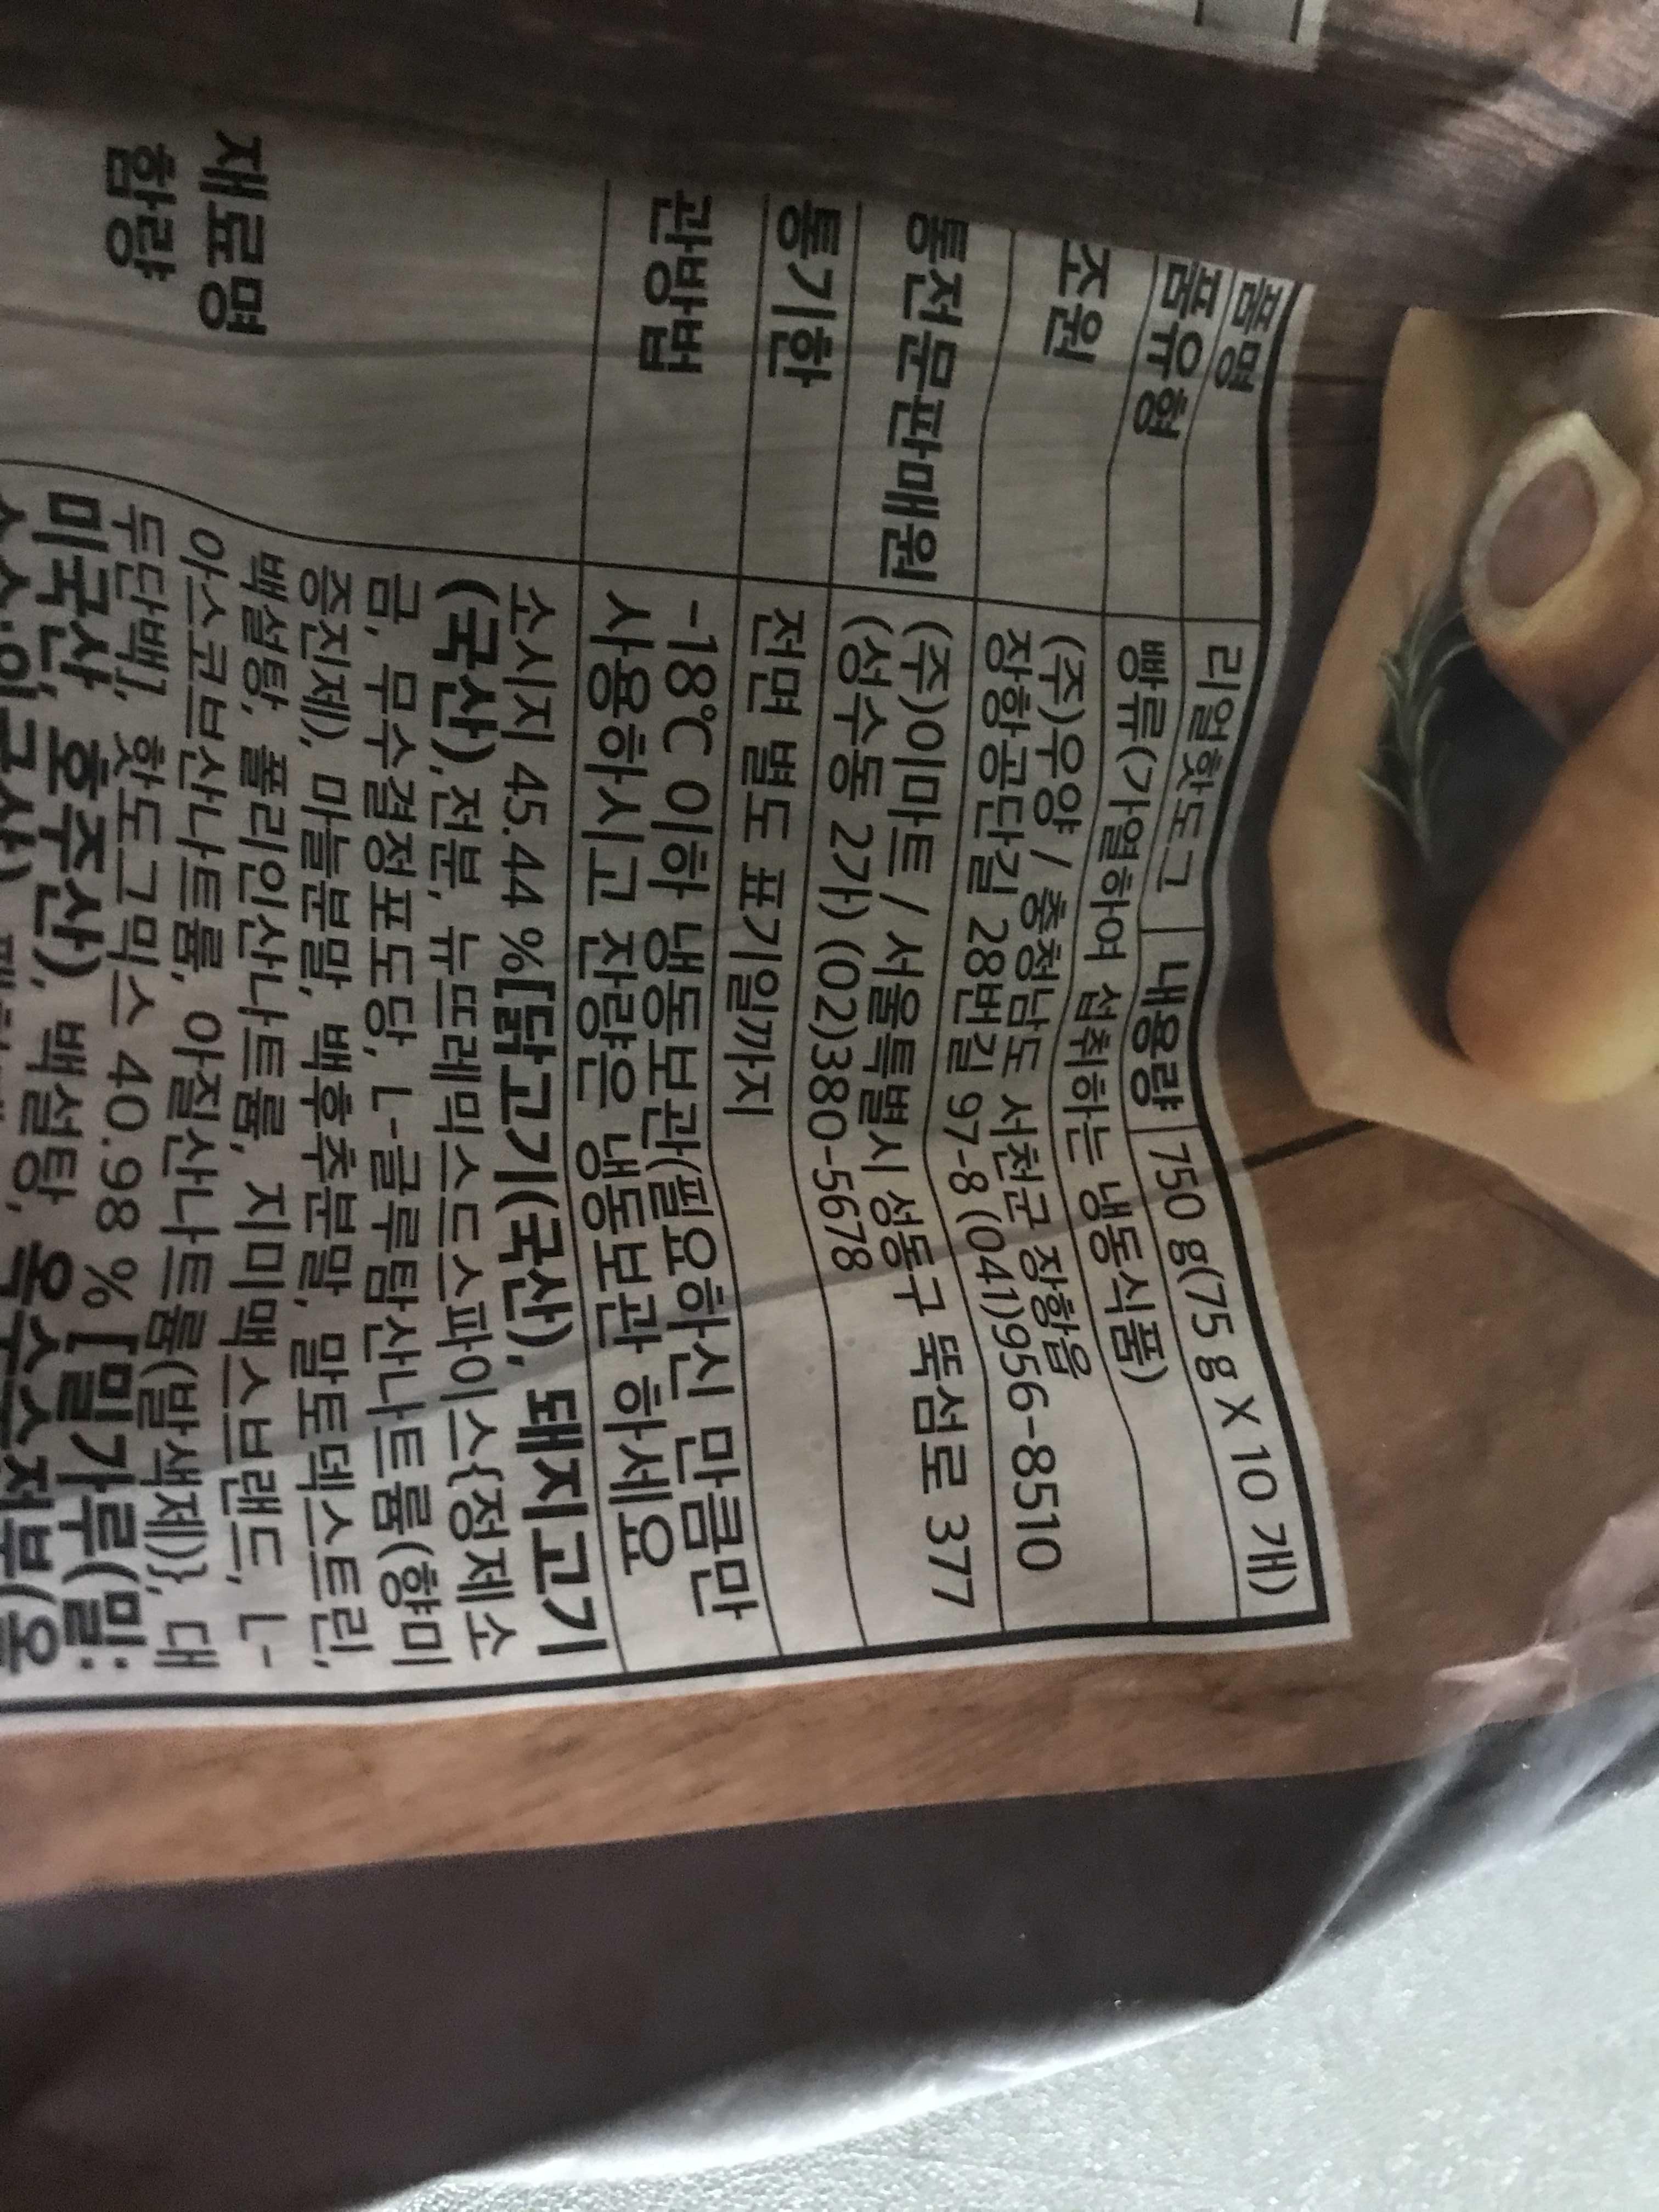 품명 리얼핫도그 내용량 750 g(75 g X 10 개)
품유형 빵류(가열하여 섭취하는 냉동식품)
조원 (주)우양 / 충청남도 서천군 장항읍
장항공단길 28번길 97-8 (041)956-8510
통전문판매원 (주)이마트 / 서울특별시 성동구 뚝섬로 377
(성수동 2가) (02)380-5678
통기한 전면 별도 표기일까지
관방법 -18℃ 이하 냉동보관(필요하신 만큼만
사용하시고 잔량은 냉동보관 하세요
재료명
함량
소시지 45.44 %[닭고기(국산), 돼지고기
(국산),전분, 뉴뜨레믹스드스파이스{정제소
금, 무수결정포도당, L-글루탐산나트륨(향미
증진제), 마늘분말, 백후추분말, 말토덱스트린,
백설탕, 폴리인산나트륨, 지미맥스브랜드, L-
아스코브산나트륨, 아질산나트륨(발색제)}, 대
두단백], 핫도그믹스 40.98 % [밀가루(밀:
미국산, 호주산), 백설탕, 옥수수전분(옥